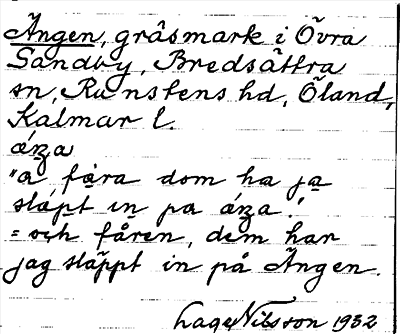 Ängen, gräsmark i Övra
Sandby, Bredsättra
sn, Runstens hd, Öland,
Kalmar l.
áŋa
"a fära dom ha ja
släpt in pa áŋa."
= och fåren, dem har
jag släppt in på Ängen.
Lage Nilsson 1932